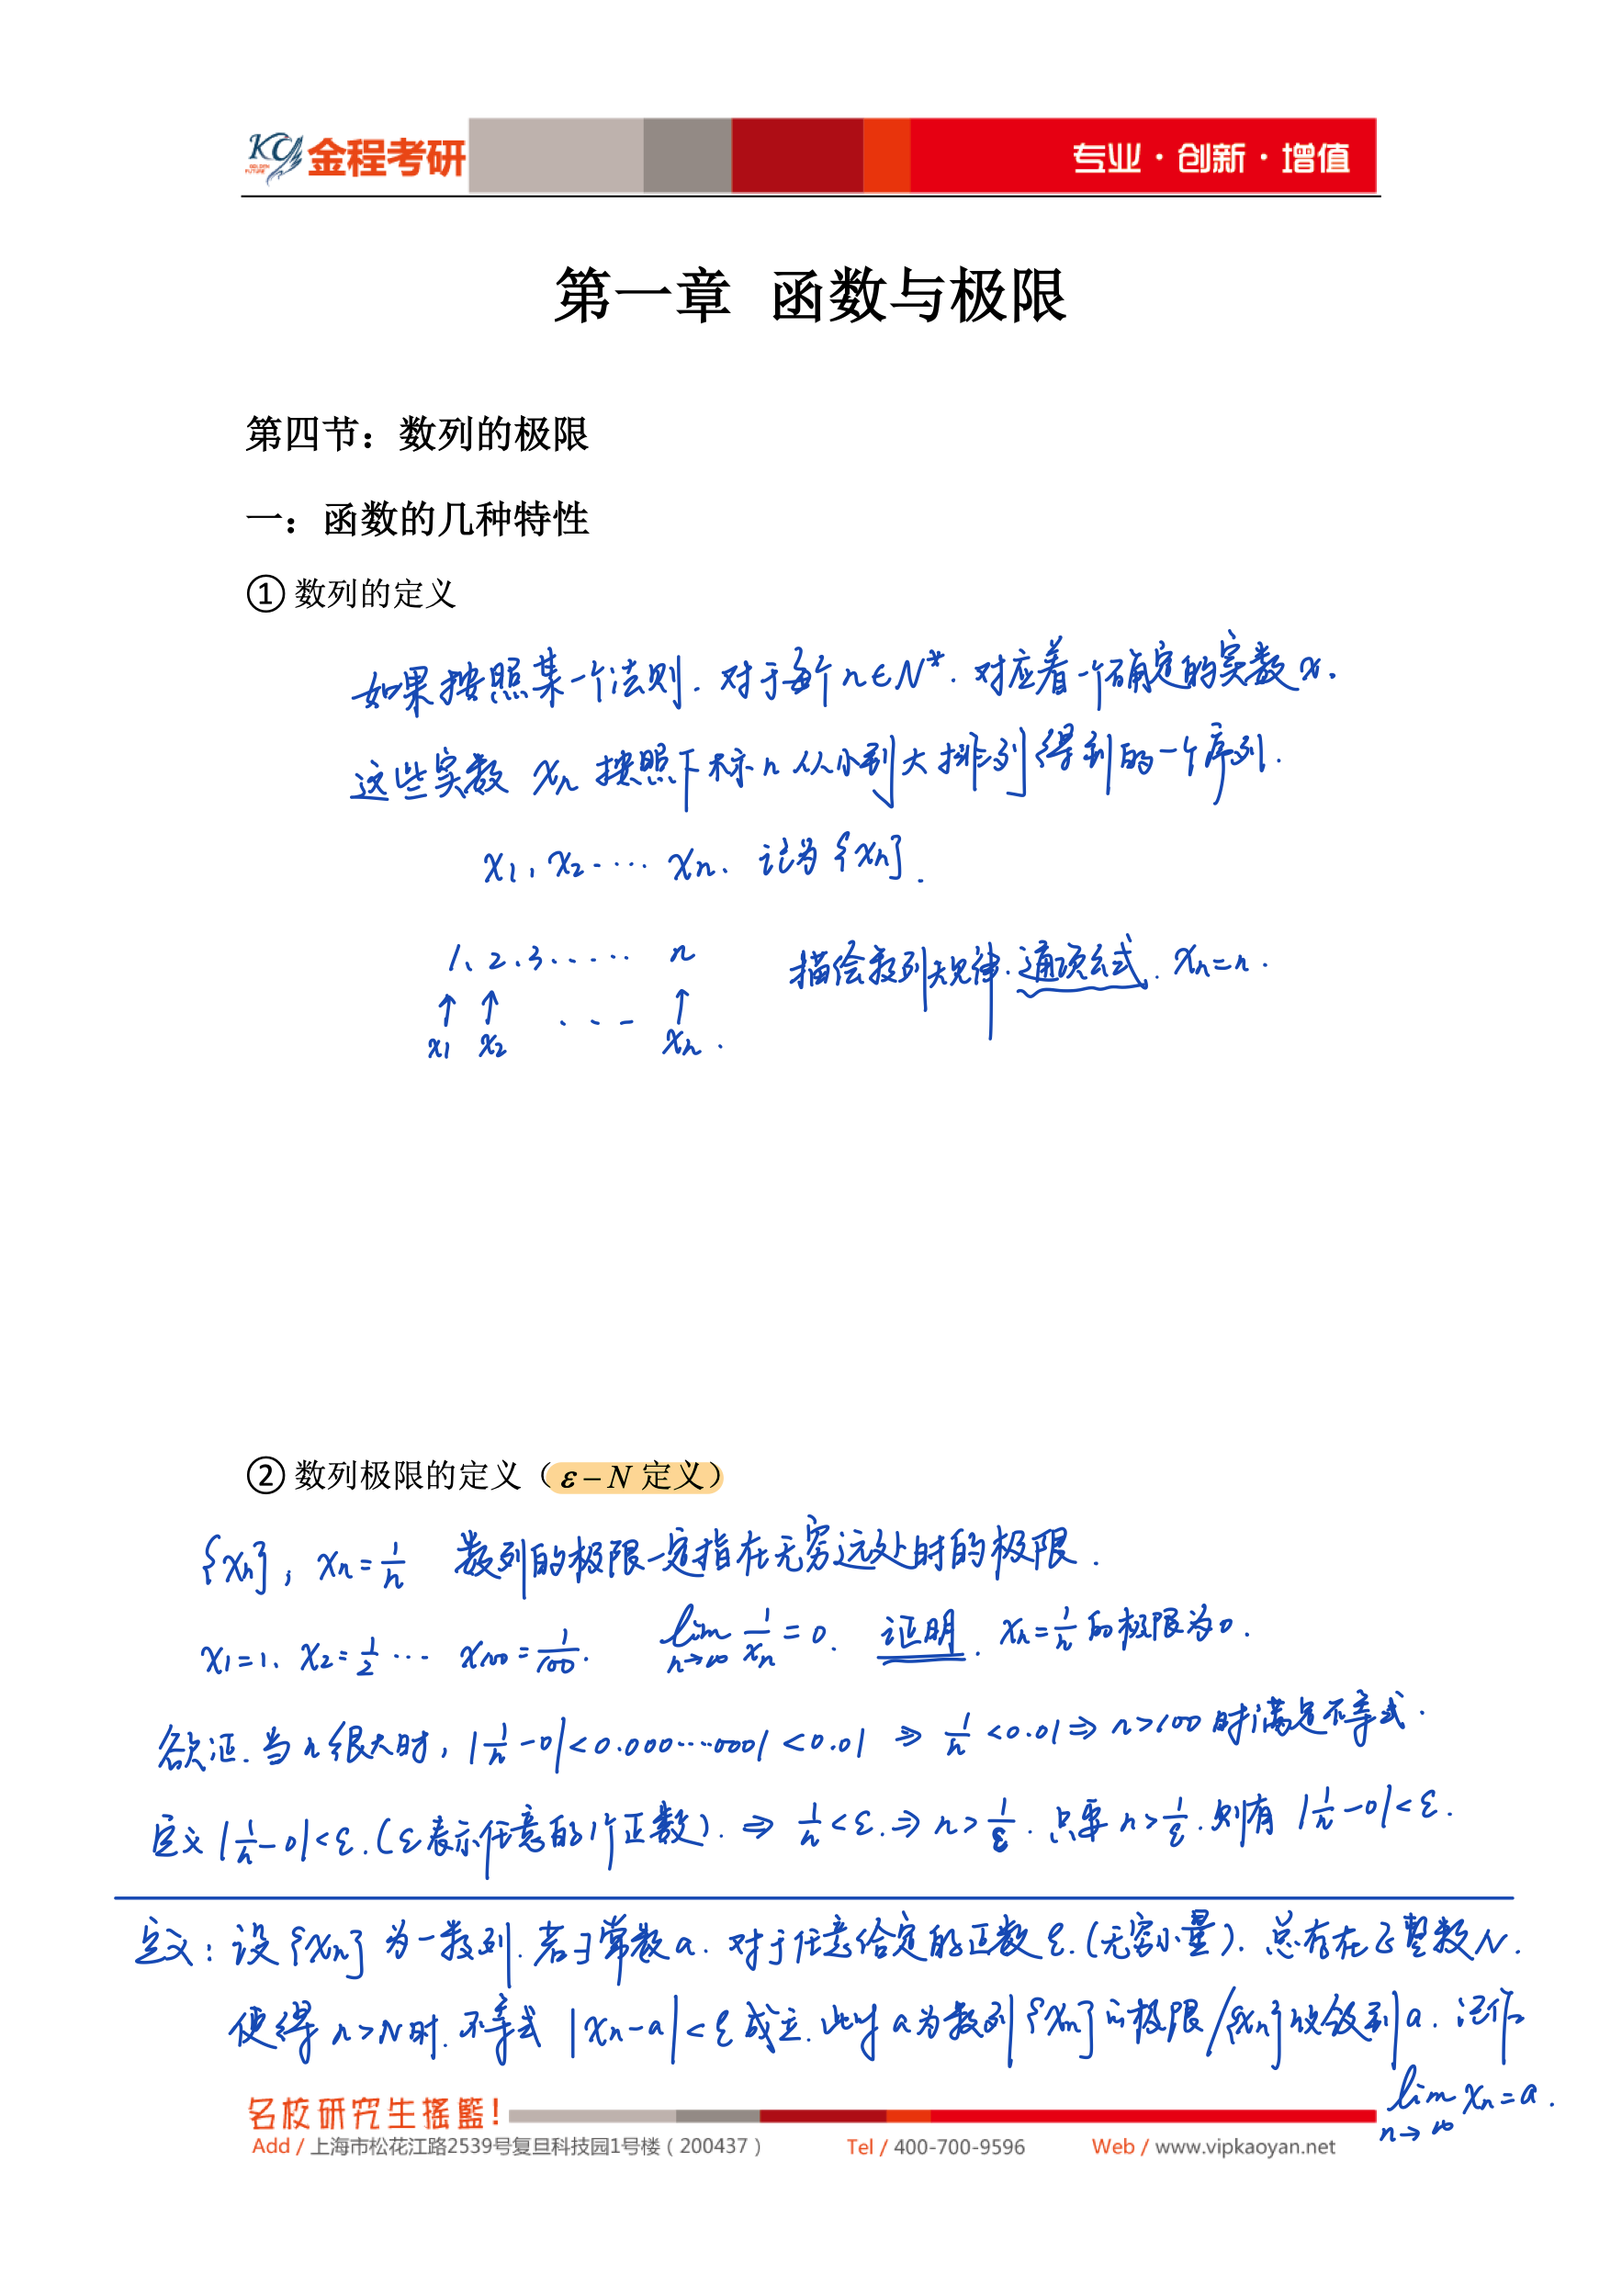 KC GOLDEN FUTURE 金程考研 专业·创新·增值
第一章 函数与极限
第四节：数列的极限
一：函数的几种特性
① 数列的定义
如果按照某一个法则. 对于每个 n∈N*. 对应着一个确定的实数 x.
这些实数 xn 按照下标 n 从小到大排列得到的一个序列.
x1, x2 ⋯ xn、记为 {xn}.
1、2、3、⋯⋯ n 描绘数列规律. 通项公式. xn=n.
↑ ↑ ⋯ ↑
x1 x2 xn.
② 数列极限的定义（ε－N 定义）
{xn}, xn=1/n 数列的极限一定指在无穷远处时的极限.
x1=1、x2=1/2 ⋯ x100=1/100. lim n→∞ 1/xn=0. 证明. xn=1/n 的极限为0.
欲证. 当 n 很大时, |1/n-0|<0.000⋯⋯0001<0.01 ⇒ 1/n<0.01 ⇒ n>100 时满足不等式.
定义 |1/n-0|<ε.(ε表示任意的1个正数). ⇒ 1/n<ε. ⇒ n>1/ε. 只要 n>1/ε. 则有 |1/n-0|<ε.
定义: 设 {xn} 为一数列. 若∃常数 a. 对于任意给定的正数 ε.(无穷小量). 总存在正整数 N.
使得 n>N 时. 不等式 |xn-a|<ε 成立. 此时 a 为数列 {xn} 的极限/{xn} 收敛到 a. 记作
lim n→∞ xn=a.
名校研究生摇篮！
Add / 上海市松花江路2539号复旦科技园1号楼（200437） Tel / 400-700-9596 Web / www.vipkaoyan.net